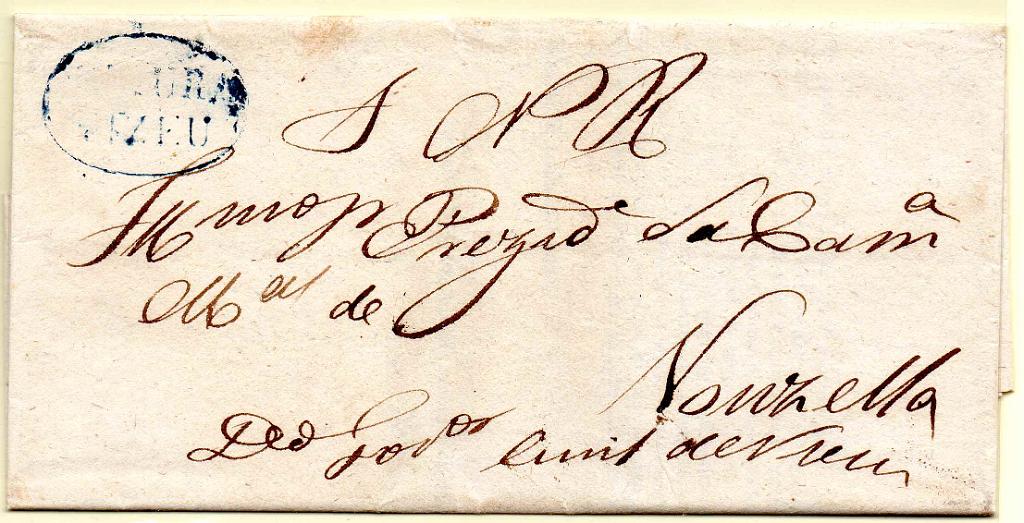 URA
VIZEU
S N R
Illmo Sr Prezide da Camª
Mal de
Nouzella
Do Govor Civil de Vizeu